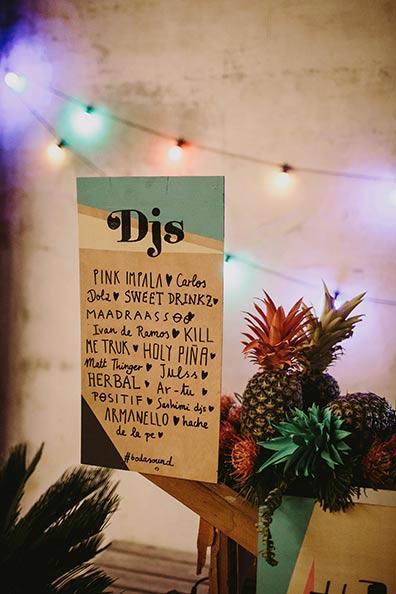 Djs
PINK IMPALA ♥ Carlos
Dolz ♥ SWEET DRINKZ ♥
MAADRAASSOO
Ivan de Ramos ♥ KILL
ME TRUK ♥ HOLY PIÑA ♥
Matt Thinger ♥ Julss ♥
HERBAL ♥ Ar-tu ♥
POSITIF ♥ Sashimi djs ♥
ARMANELLO ♥ hache
de la pe ♥
#bodasound